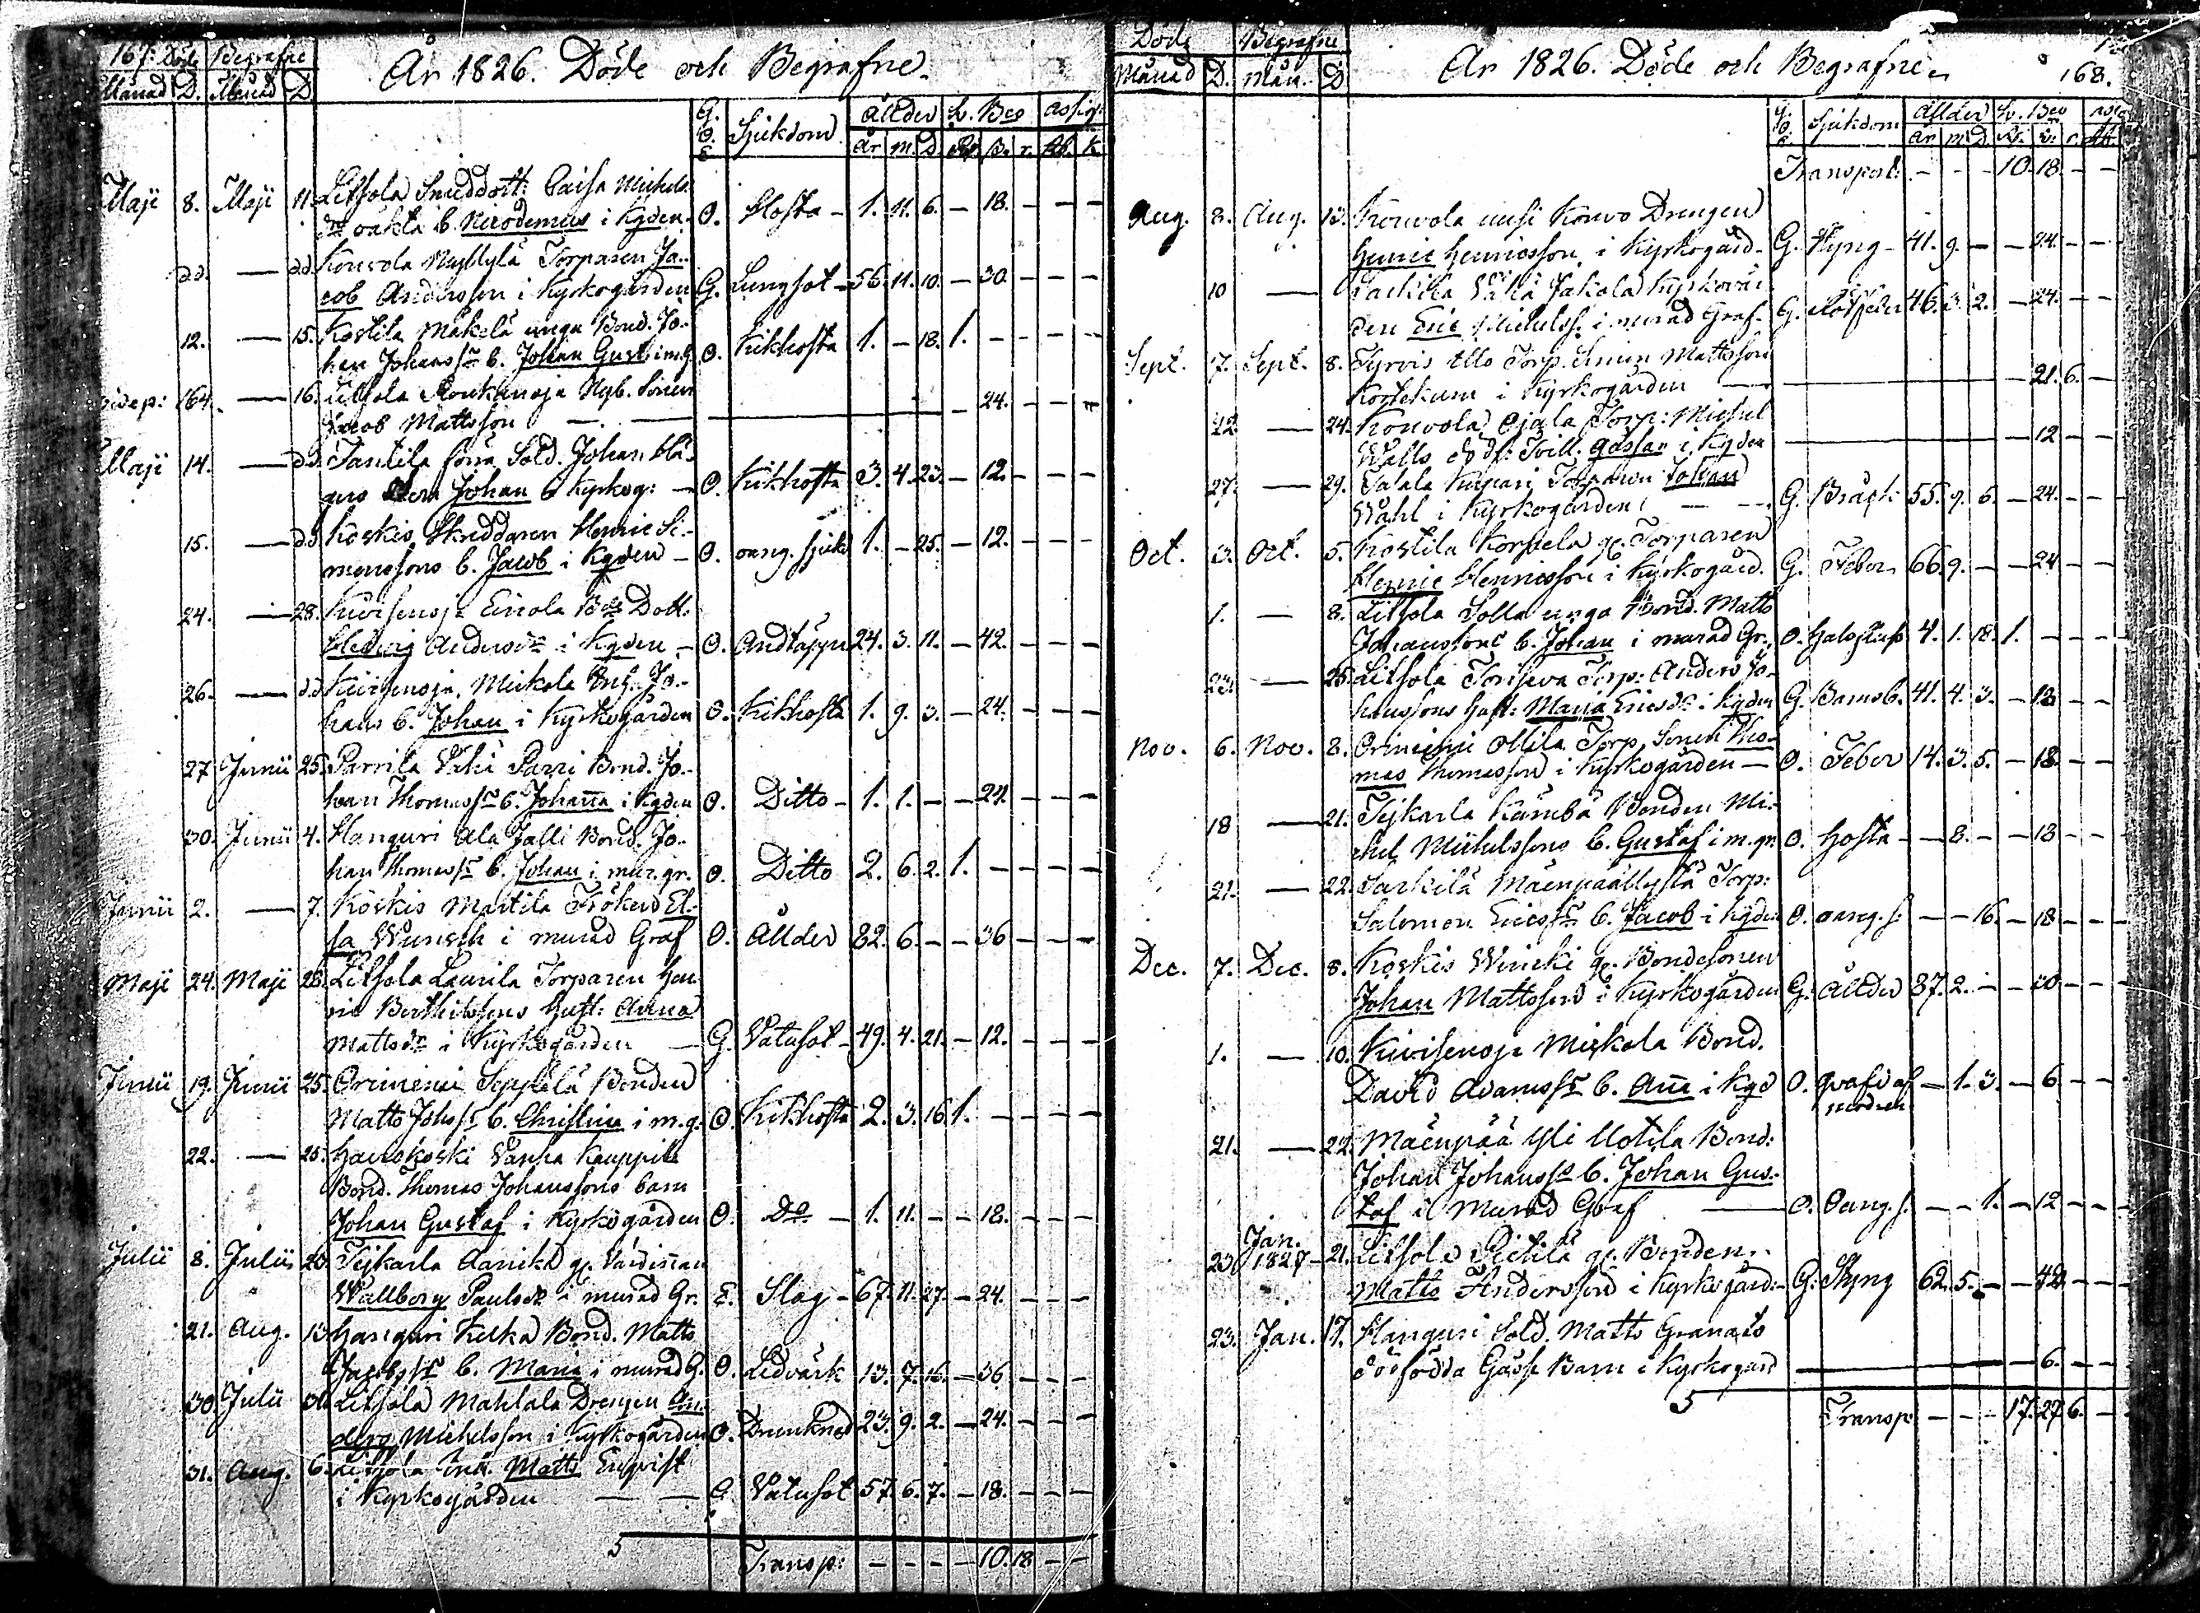 167. Döde Begrafne
År 1826. Döde och Begrafne.
Månad D. Månad D
G. O. E. Sjukdom Ållder K. Bes assig:
År m. D. Rb. B. r. Rb. K
Maji 8. Maji 11. Litsola Smeddott: Caisa Michels
dr oäkta b. Nicodemus i Kgden. O. Hosta - 1. 11. 6. - 18. - - -
dd. — dd. Konvola Nyblylä Torparen Ja-
cob Andersson i Kyrkogården G. Lungsot - 56. 11. 10. - 30. - - -
12. — 15. Kostila Mäkelä unga Bond. Jo-
han Johanss b. Johan Gust i m.g O. Kikhosta 1. - 18. 1. - - - -
164. — 16. Nyb. Sonen
Jacob Mattsson — 24. - - -
Maji 14. — dd. Tantila förra Sold. Johan
Johan i Kyrkog: - O. Kikhosta 3. 4. 23. - 12. - - -
15. — dd. Koskis Skreddaren Henric Si-
monssons b. Jacob i Kgden - O. oang. sjukd 1. - 25. - 12. - - -
24. — 28. Kurisenoja Einola Bds Dott.
Hedvig Andersdr i Kgden - O. Andtäppa 24. 3. 11. - 42. - - -
26. — dd. Kurisenoja Mickola Inh. Jo-
hans b. Johan i Kyrkogården O. Kikhosta 1. 9. 3. - 24. - - -
27 Junii 25. Parrila Vähä Parri Bond. Jo-
han Thomass b. Johanna i Kgden O. Ditto - 1. 1. - - 24. - - -
30. Junii 4. Hanguri Ala Jalli Bond. Jo-
han Thomass b. Johan i mur. gr. O. Ditto 2. 6. 2. 1. - - - -
Junii 2. — 7. Koskis Martila Fröken El-
sa Wunsch i murad Graf O. Ållder 82. 6. - - 36 - - -
Maji 24. Maji 28. Litsola Laurila Torparen Hen
ric Berthilssons Hust: Anna
Mattsdr i Kyrkogården — G. Vatusot - 49. 4. 21. - 12. - - -
Junii 19. Junii 25. Orimeni Seppälä Bonden
Matts Johss b. Christina i m.g. O. Kikhosta 2. 3. 16. 1. - - - -
22. — 25. Haviokoski Vanha Kauppila
Bond. Thomas Johanssons barn
Johan Gustaf i Kyrkogården O. Do - 1. 11. - - 18. - - -
Julii 8. Julii 23. Tejkarla Aanikd gl. Värdinnan
Wallborg Paulsdr i murad Gr. E. Slag - 67. 11. 27. - 24. - - -
21. Aug. 13. Hanguri Kulka Bond. Matts
b. Maria i murad G. O. Ledvärk 13. 7. 16. - 36 - - -
30. Julii 30. Litsola Mahlala Drengen An-
ders Michelsson i Kyrkogården O. Drunknad 23. 9. 2. - 24. - - -
31. Aug. 6. Litsola Inh. Matts Enqvist
i Kyrkogården — G. Vatusot 57. 6. 7. - 18. - - -
5 Transp: - - - - 10. 18. - -
Döde Begrafne
År 1826. Döde och Begrafne. 168.
Månad D. Mån. D
G. O. E. Sjukdom Ållder K. Bes assig
År m. D. Rb. B. r. Rb.
Transport: - - - 10. 18. - -
Aug. 8. Aug. 13. Konvola uusi Konvo Drengen
Henric Henricsson i Kyrkogård. G. Styng - 41. 9. - - 24. - - -
10 — Vähä Jakola
den Eric Michelss. i murad Graf. G. Rötfeber 46. 3. 2. - 24. - -
Sept. 7. Sept. 8. Tyrvis Ollo Torp. Simon Mattsson
i Kyrkogården — 21. 6. -
22 — 24. Konvola Ojala Torp: Michel
Walls dödf: Tvill. Gossar i Kgden — 12 - -
27. — 29. Talala Kupari Torparen Johan
Wahl i Kyrkogården - - G. Bråck 55. 9. 6. - 24. - -
Oct. 3. Oct. 5. Kostila Korpela gl. Torparen
Henric Henricsson i Kyrkogård. G. Feber 66. 9. - - 24 - -
1. — 8. Litsola Solla unga Bond. Matts
Johanssons b. Johan i murad Gr. O. Halsfluss 4. 1. 18. 1. - - -
23. — 25. Litsola Torisева Torp: Anders Jo-
hanssons Hust: Maria Ericsdr i Kgden G. Barnsb. 41. 4. 3. - 18 - -
Nov. 6. Nov. 8. Orimeni Ollila Torp. Sonen Tho-
mas Thomasson i Kyrkogården - O. Feber 14. 3. 5. - 18 - -
18 — 21. Tejkarla Kämbä Bonden Mi-
chel Michelssons b. Gustaf i m. gr. O. Hosta - - 8. - - 18 - -
21. — 22. Sarkilä Mäenpäällystä Torp:
Salomon Ericss b. Jacob i Kgden O. oang. s. - - 16. - 18 - -
Dec. 7. Dec. 8. Koskis Winicki gl. Bondesonen
Johan Mattsson i Kyrkogården G. Ållder 87. 2. - - 30 - -
1. — 10. Kurisenoja Mickola Bond.
David Adamss b. Anna i Kgd O. qvafd af - 1. 3. - 6 - -
modren
21. — 22. Mäenpää Yli Uotila Bond:
Johan Johanss b. Johan Gus-
taf i Murad Graf — O. Oang. s. - - 1. - 12 - -
23. Jan. 1827 - 21. Litsola Pietilä gl. Bonden
Matts Andersson i Kyrkogård: - G. Styng 62. 5. - - 42 - -
23. Jan. 17. Hanguri Sold. Matts Granats
dödfödda Gosse Barn i Kyrkogård — 6. - -
5 Transp - - - 17. 27. 6. -